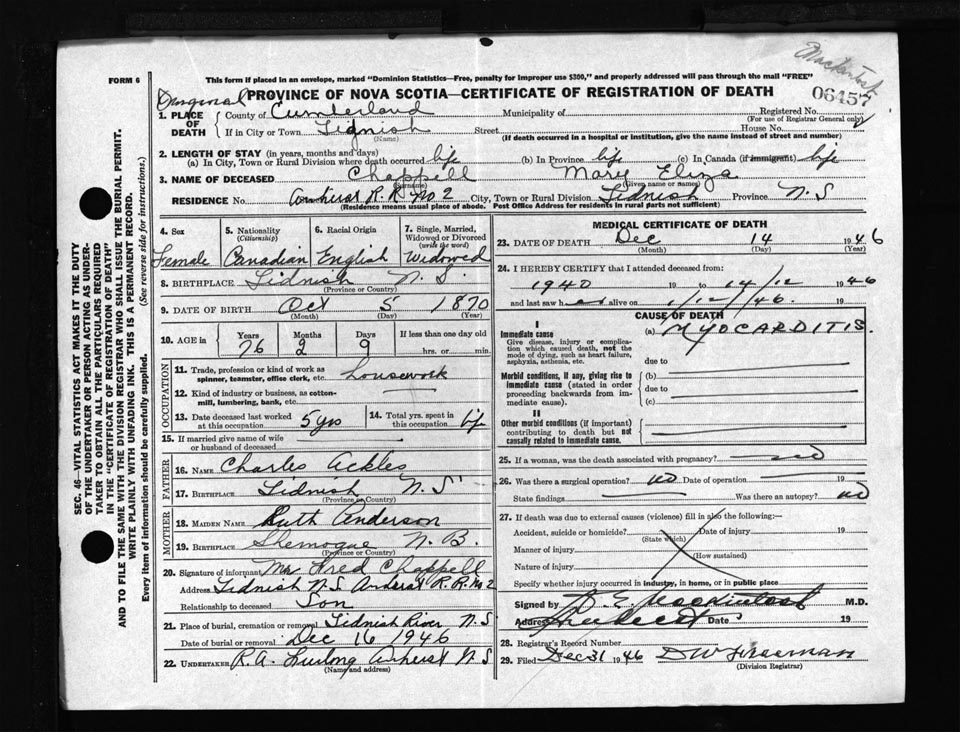 FORM 6
This form if placed in an envelope, marked "Dominion Statistics—Free, penalty for improper use $300," and properly addressed will pass through the mail "FREE"
Mackintosh
06457
Original
PROVINCE OF NOVA SCOTIA—CERTIFICATE OF REGISTRATION OF DEATH
1. PLACE OF DEATH
County of Cumberland Municipality of Registered No.
(For use of Registrar General only)
If in City or Town Tidnish Street House No.
(Name) (If death occurred in a hospital or institution, give the name instead of street and number)
2. LENGTH OF STAY (in years, months and days)
(a) In City, Town or Rural Division where death occurred life (b) In Province life (c) In Canada (if immigrant) life
3. NAME OF DECEASED Chappell Mary Eliza
(Surname) (Given name or names)
RESIDENCE No. Amherst R.R. No 2 City, Town or Rural Division Tidnish Province N.S
(Residence means usual place of abode. Post Office Address for residents in rural parts not sufficient)
4. Sex 5. Nationality (Citizenship) 6. Racial Origin 7. Single, Married, Widowed or Divorced (write the word)
Female Canadian English Widowed
8. BIRTHPLACE Tidnish N.S.
(Province or Country)
9. DATE OF BIRTH Oct 5 1870
(Month) (Day) (Year)
10. AGE in Years Months Days If less than one day old
76 2 9 hrs. or min.
OCCUPATION
11. Trade, profession or kind of work as spinner, teamster, office clerk, etc. housework
12. Kind of industry or business, as cotton-mill, lumbering, bank, etc.
13. Date deceased last worked at this occupation 5 yrs
14. Total yrs. spent in this occupation life
15. If married give name of wife or husband of deceased
FATHER
16. NAME Charles Ackles
17. BIRTHPLACE Tidnish N.S.
(Province or Country)
MOTHER
18. MAIDEN NAME Ruth Anderson
19. BIRTHPLACE Shemogue N.B.
(Province or Country)
20. Signature of informant Mr Fred Chappell
Address Tidnish N.S. Amherst R.R. No 2
Relationship to deceased Son
21. Place of burial, cremation or removal Tidnish River N.S
Date of burial or removal Dec 16 1946
22. UNDERTAKER R.A. Furlong Amherst N.S
(Name and address)
MEDICAL CERTIFICATE OF DEATH
23. DATE OF DEATH Dec 14 1946
(Month) (Day) (Year)
24. I HEREBY CERTIFY that I attended deceased from:
1940 19 to 14/12 1946
and last saw her alive on 1/12/46. 19
CAUSE OF DEATH
I
Immediate cause (a) MYOCARDITIS.
Give disease, injury or complication which caused death, not the mode of dying, such as heart failure, asphyxia, asthenia, etc.
due to
Morbid conditions, if any, giving rise to immediate cause (stated in order proceeding backwards from immediate cause).
(b)
due to
(c)
II
Other morbid conditions (if important) contributing to death but not causally related to immediate cause.
25. If a woman, was the death associated with pregnancy? no
26. Was there a surgical operation? no Date of operation 19
State findings Was there an autopsy? no
27. If death was due to external causes (violence) fill in also the following:—
Accident, suicide or homicide? Date of injury 19
(State which)
Manner of injury
(How sustained)
Nature of injury
Specify whether injury occurred in industry, in home, or in public place
Signed by D. E. Mackintosh M.D.
Address Amherst Date 19
28. Registrar's Record Number
29. Filed Dec 31 1946 DW Freeman
(Division Registrar)
SEC. 46—VITAL STATISTICS ACT MAKES IT THE DUTY
OF THE UNDERTAKER OR PERSON ACTING AS UNDER-
TAKER TO OBTAIN ALL THE PARTICULARS REQUIRED
IN THE "CERTIFICATE OF REGISTRATION OF DEATH"
AND TO FILE THE SAME WITH THE DIVISION REGISTRAR WHO SHALL ISSUE THE BURIAL PERMIT.
WRITE PLAINLY WITH UNFADING INK. THIS IS A PERMANENT RECORD.
Every item of information should be carefully supplied. (See reverse side for instructions.)